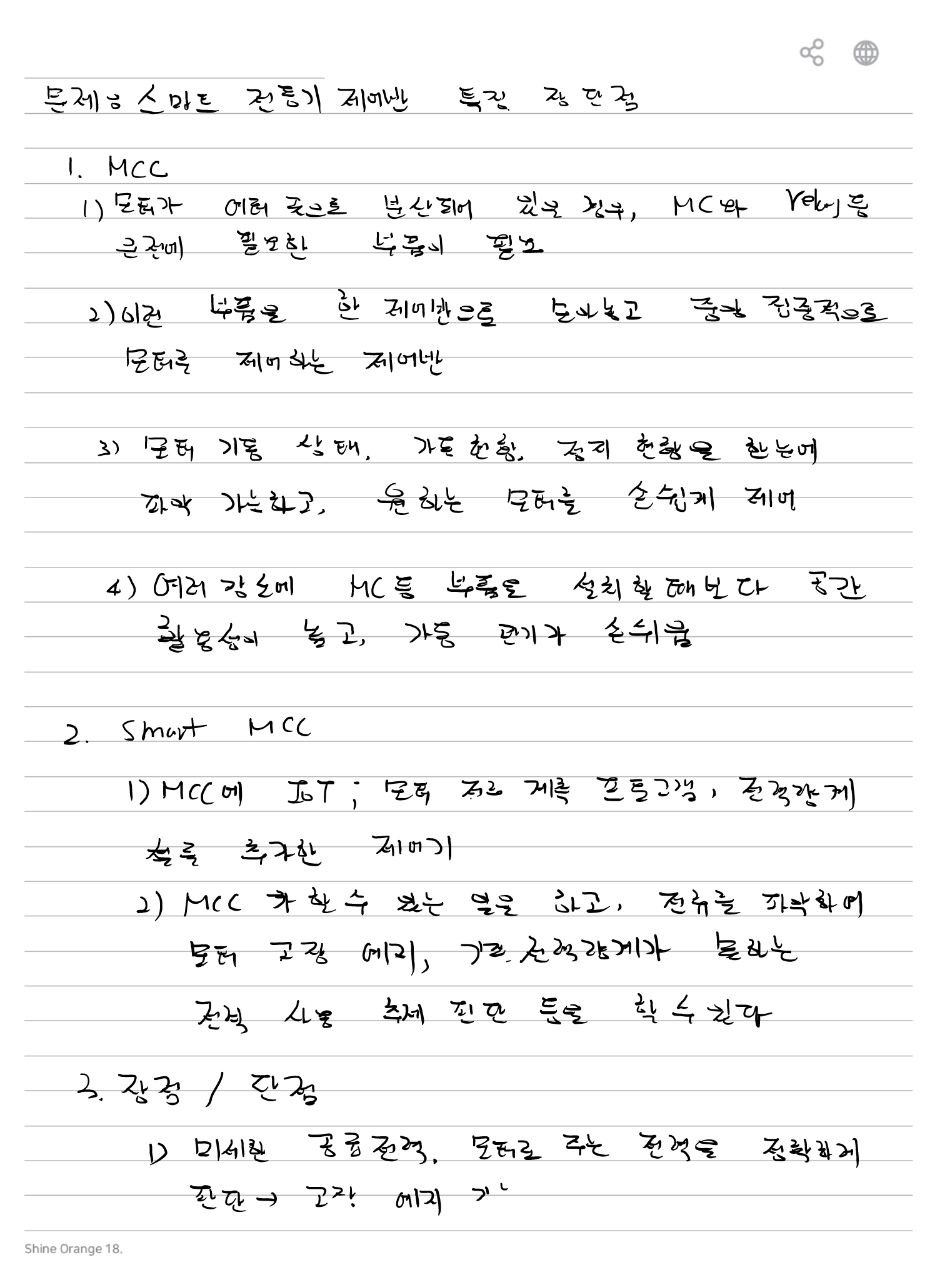 문제는 스마트 전동기 제어반 특징 장단점
1. MCC
1) 모터가 여러 곳으로 분산되어 있을 경우, MC와 relay등
근처에 필요한 부품이 필요
2) 이런 부품을 한 제어반으로 모아놓고 중앙 집중적으로
모터를 제어하는 제어반
3) 모터 기동 상태, 가동현황, 정지 현황을 한눈에
파악 가능하고, 원하는 모터를 손쉽게 제어
4) 여러 장소에 MC등 부품을 설치할때보다 공간
활용성이 높고, 가동 관리가 손쉬움
2. Smart MCC
1) MCC에 IoT; 모터 계측 프로그램, 전력량계
등을 추가한 제어기
2) MCC가 할 수 있는 일을 하고, 전류를 파악하여
모터 고장 예지, 기존 전력량계가 못하는
전력 사용 추세 판단 등을 할 수 있다
3. 장점 / 단점
1) 미세한 공급전력, 모터로 주는 전력을 정확하게
판단→ 고장 예지 가
Shine Orange 18.